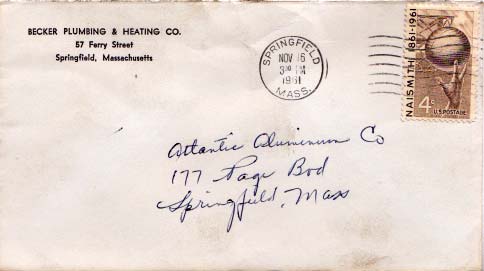 BECKER PLUMBING & HEATING CO.
57 Ferry Street
Springfield, Massachusetts
SPRINGFIELD
NOV 16
3 PM
1961
MASS.
NAISMITH 1861-1961
4c
U.S. POSTAGE
Atlantic Aluminum Co
177 Page Bvd
Springfield, Mass